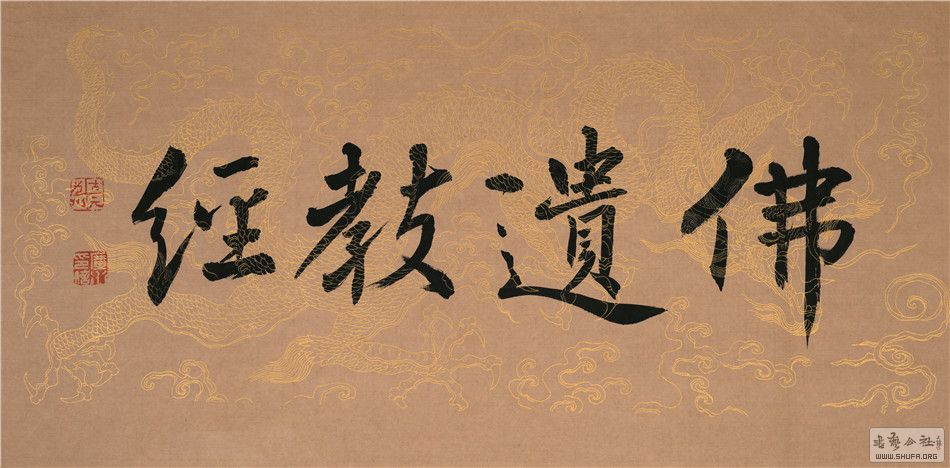 佛遺教經
書藝公社
WWW.SHUFA.ORG